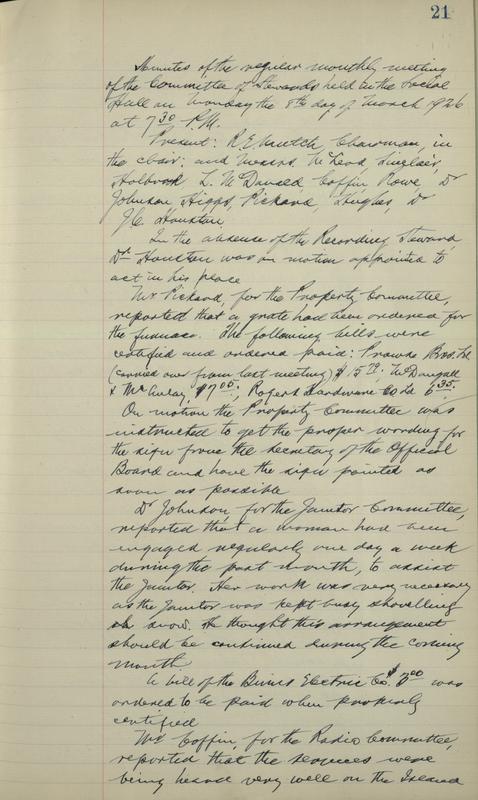 21
Minutes of the regular monthly meeting
of the Committee of Stewards held in the Social
Hall on Monday the 8th day of March 1926
at 7 30 P.M.
Present: R.E. Mutch, Chairman, in
the chair; and Messrs McLeod, Sinclair,
Holbrook, L. McDonald, Coffin, Rowe, Dr
Johnson, Higgs, Pickard, Hughes, Dr
J.C. Houston.
In the absence of the Recording Steward,
Dr Houston was on motion appointed to
act in his place
Mr Pickard, for the Property Committee,
reported that a grate had been ordered for
the furnace. The following bills were
certified and ordered paid: Prowse Bros. Ltd
(carried over from last meeting) $15 McDougall
& McAulay, $7 05; Rogers Hardware Co Ld 6 35.
On motion the Property Committee was
instructed to get the proper wording for
the sign from the secretary of the Official
Board and have the sign painted as
soon as possible
Dr Johnson for the Janitor Committee,
reported that a woman had been
engaged regularly one day a week
during the past month, to assist
the Janitor. Her work was very necessary
as the Janitor was kept busy shovelling
snow. He thought this arrangement
should be continued during the coming
month.
A bill of the Burns Electric Co. $ 00 was
ordered to be paid when properly
certified
Mr Coffin, for the Radio Committee,
reported that the services were
being heard very well on the Island